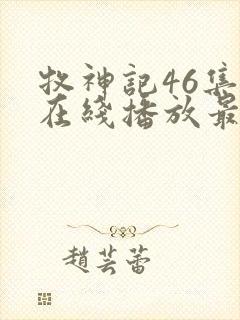 牧神記46集
在綫播放最
趙芸蕾